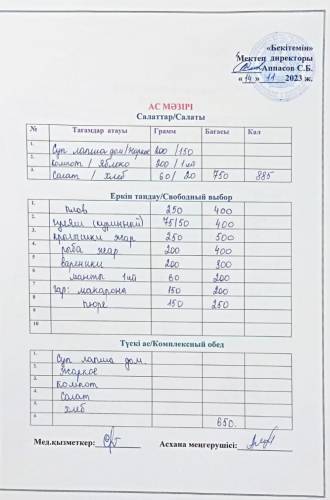 «Бекітемін»
Мектеп директоры
Аппасов С.Б.
« 14 » 11 2023 ж.
АС МӘЗІРІ
Салаттар/Салаты
№ Тағамдар атауы Грамм Бағасы Кал
1. Суп лапша дом/жаркое 200 /150
2. Компот / Яблоко 200 / 1шт
3. Салат / хлеб 60 / 20 750 885
Еркін таңдау/Свободный выбор
1. Плов 250 400
2. Гуляш (куринный) 75/50 400
3. 250 500
4. жар 200 400
5. Вареники 200 300
6. манты 1шт 60 200
7. Гар: макарона 150 200
8. пюре 150 250
9
10
Түскі ас/Комплексный обед
1. Суп лапша дом.
2. Жаркое
3. Компот
4. Салат
5. хлеб
6. 650.
Мед.қызметкер: Асхана меңгерушісі: